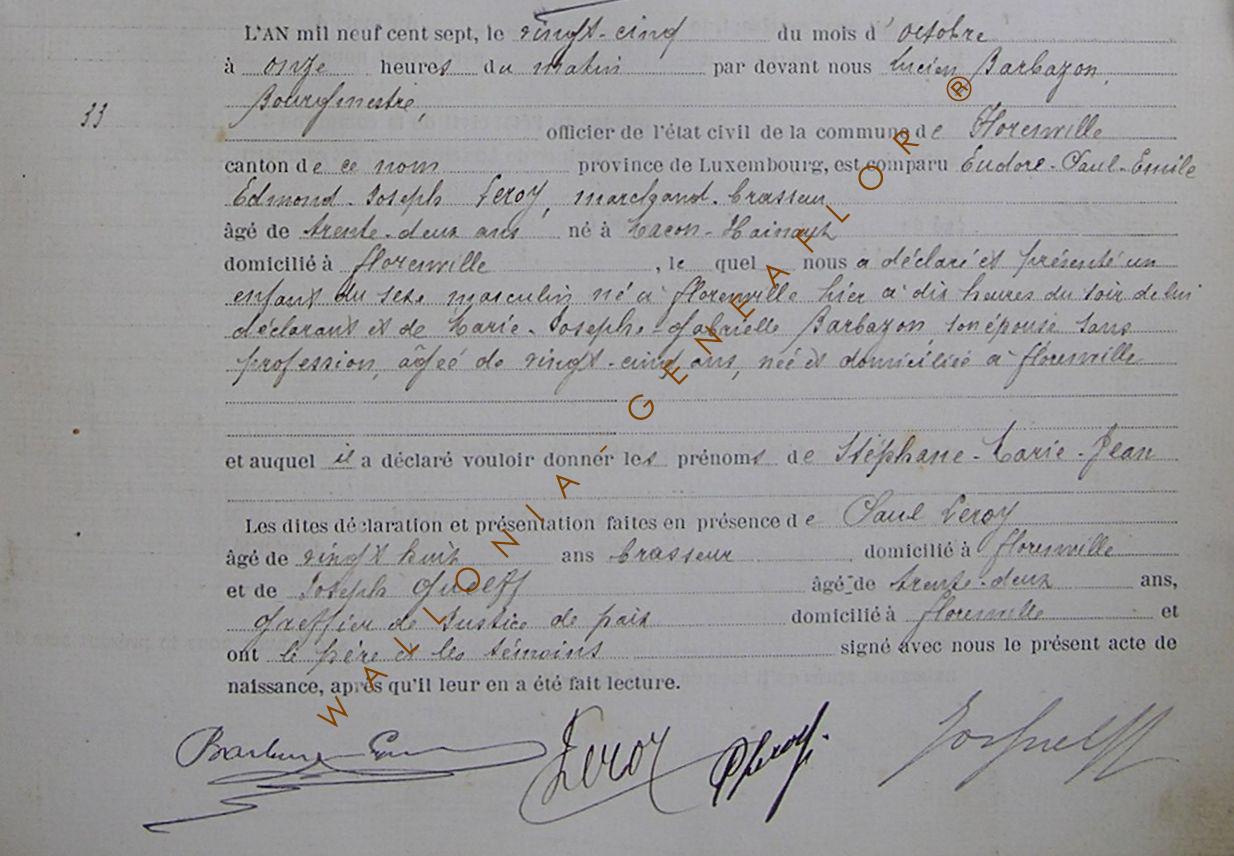 L'AN mil neuf cent sept, le vingt-cinq du mois d'octobre
à onze heures du matin par devant nous Lucien Barbazon,
Bourgmestre,
33
officier de l'état civil de la commune de Florenville
canton de ce nom province de Luxembourg, est comparu Eudore-Paul-Emile
Edmond-Joseph Leroy, marchand-brasseur
âgé de trente-deux ans né à Macon-Hainaut
domicilié à Florenville, le quel nous a déclaré et présenté un
enfant du sexe masculin né à Florenville hier à dix heures du soir de lui
déclarant et de Marie-Josephe-Gabrielle Barbazon son épouse sans
profession, âgée de vingt-cinq ans, née et domiciliée à Florenville
et auquel il a déclaré vouloir donner les prénoms de Stéphane-Marie-Jean
Les dites déclaration et présentation faites en présence de Paul Leroy
âgé de vingt huit ans brasseur domicilié à Florenville
et de Joseph âgé de trente-deux ans,
Greffier de Justice de paix domicilié à Florenville et
ont le père et les témoins signé avec nous le présent acte de
naissance, après qu'il leur en a été fait lecture.
Leroy
PLeroy
WALLONIA-GENEAFLOR®